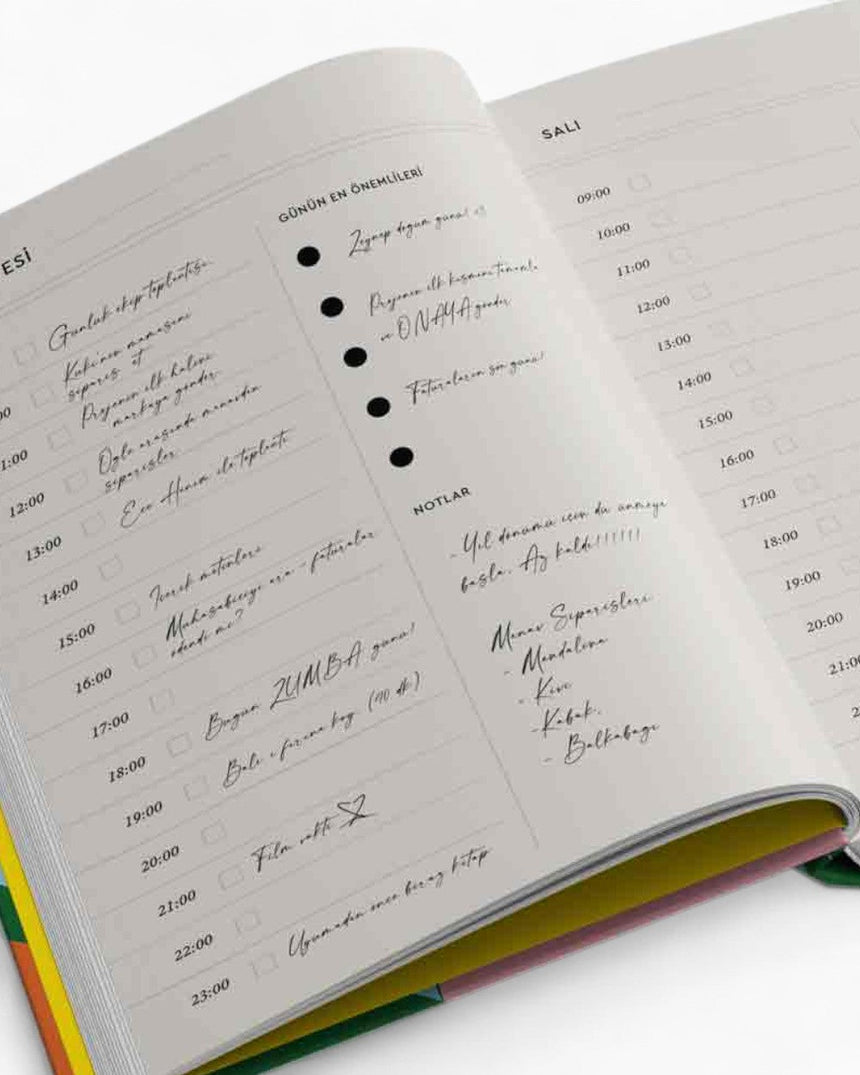 ESİ
Günlük ekip toplantısı
Kuki'nin mamasını
00
sipariş et
Projenin ilk halini
1:00
markaya gönder.
Öğle arasında manavdan
12:00
siparişler
Ece Hanım ile toplantı
13:00
14:00
İçerik metinleri
15:00
Muhasebeciyi ara - faturalar
16:00
ödendi mi?
17:00
Bugün ZUMBA günü!
18:00
Balı fırına koy (40 dk)
19:00
20:00
Film vakti
21:00
22:00
Uyumadan önce biraz kitap
23:00
GÜNÜN EN ÖNEMLİLERİ
Zeynep doğum günü!
Projenin ilk kısmını tamamla
ve ONAYA gönder
Faturaların son günü!
NOTLAR
- Yıl dönümü için düşünmeye
başla. Ay kaldı!!!!!!
Manav Siparişleri
- Mandalina
- Kivi
- Kabak.
- Balkabağı
SALI
09:00
10:00
11:00
12:00
13:00
14:00
15:00
16:00
17:00
18:00
19:00
20:00
21:00
2